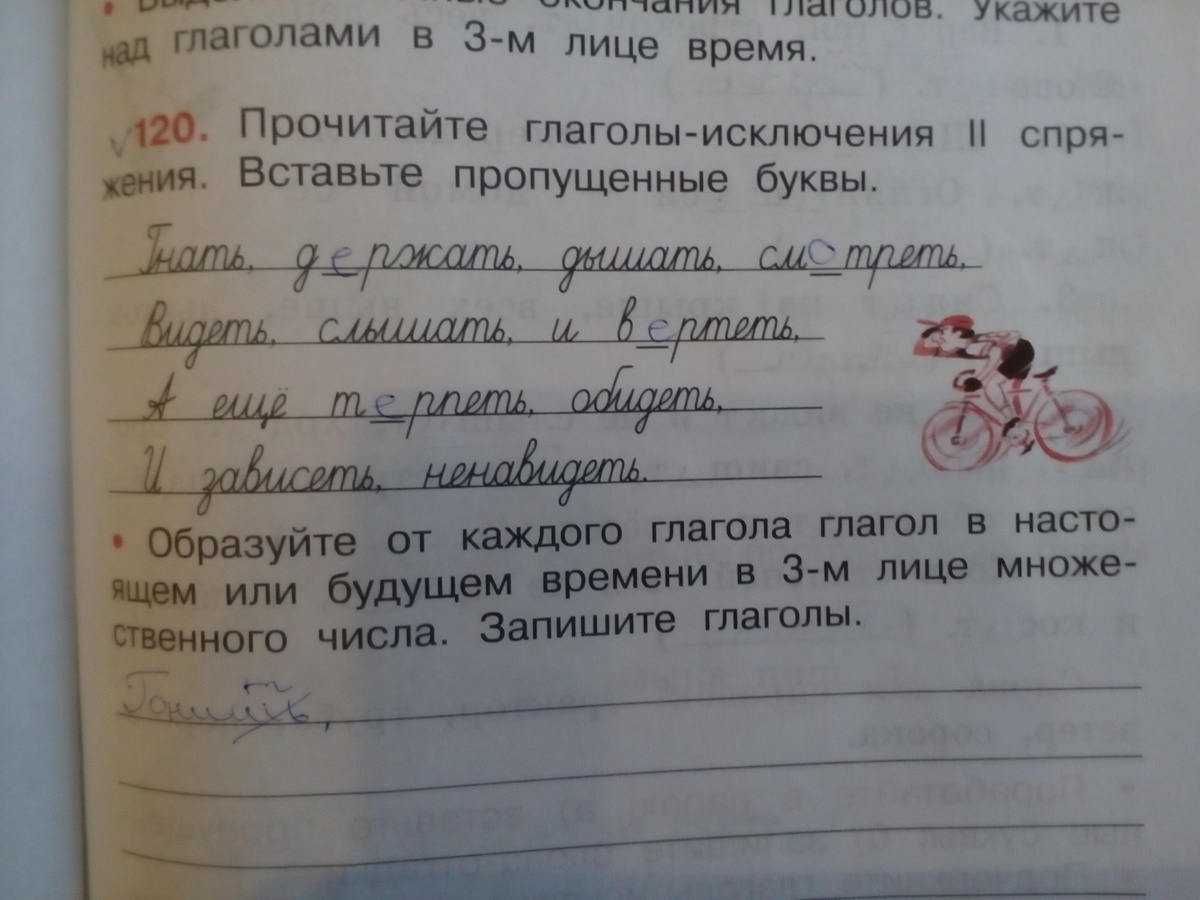 окончания глаголов. Укажите
над глаголами в 3-м лице время.
120. Прочитайте глаголы-исключения II спря-
жения. Вставьте пропущенные буквы.
Гнать, держать, дышать, смотреть,
Видеть, слышать, и вертеть,
А ещё терпеть, обидеть,
И зависеть, ненавидеть.
• Образуйте от каждого глагола глагол в насто-
ящем или будущем времени в 3-м лице множе-
ственного числа. Запишите глаголы.